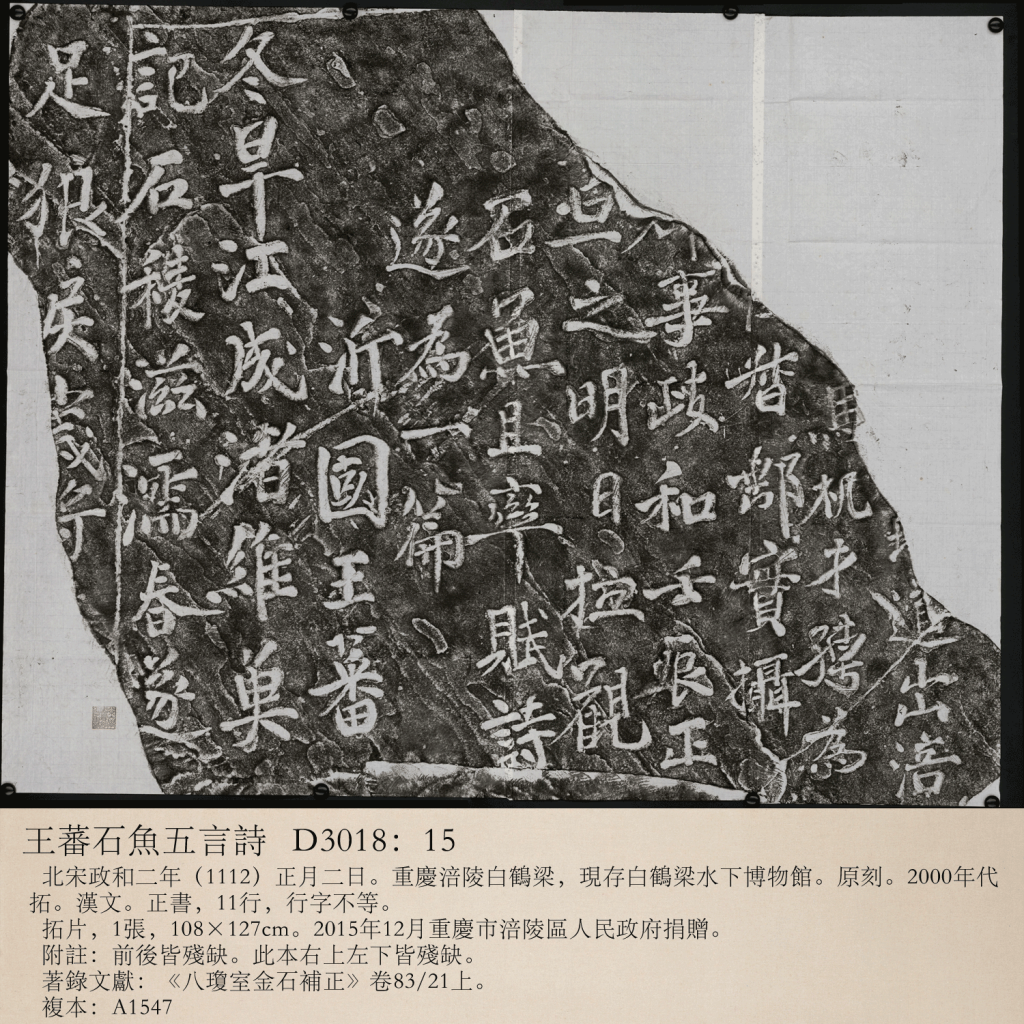 山涪
机才為
鄰實攝
事政和壬辰正
旦之明日拉觀
石魚且率賦詩
遂為一篇
沂國王蕃
冬旱江成渚維
記石稷滋濡春遂
足狼戾歲
王蕃石魚五言詩 D3018：15
北宋政和二年（1112）正月二日。重慶涪陵白鶴梁，現存白鶴梁水下博物館。原刻。2000年代
拓。漢文。正書，11行，行字不等。
拓片，1張，108×127cm。2015年12月重慶市涪陵區人民政府捐贈。
附註：前後皆殘缺。此本右上左下皆殘缺。
著錄文獻：《八瓊室金石補正》卷83/21上。
複本：A1547